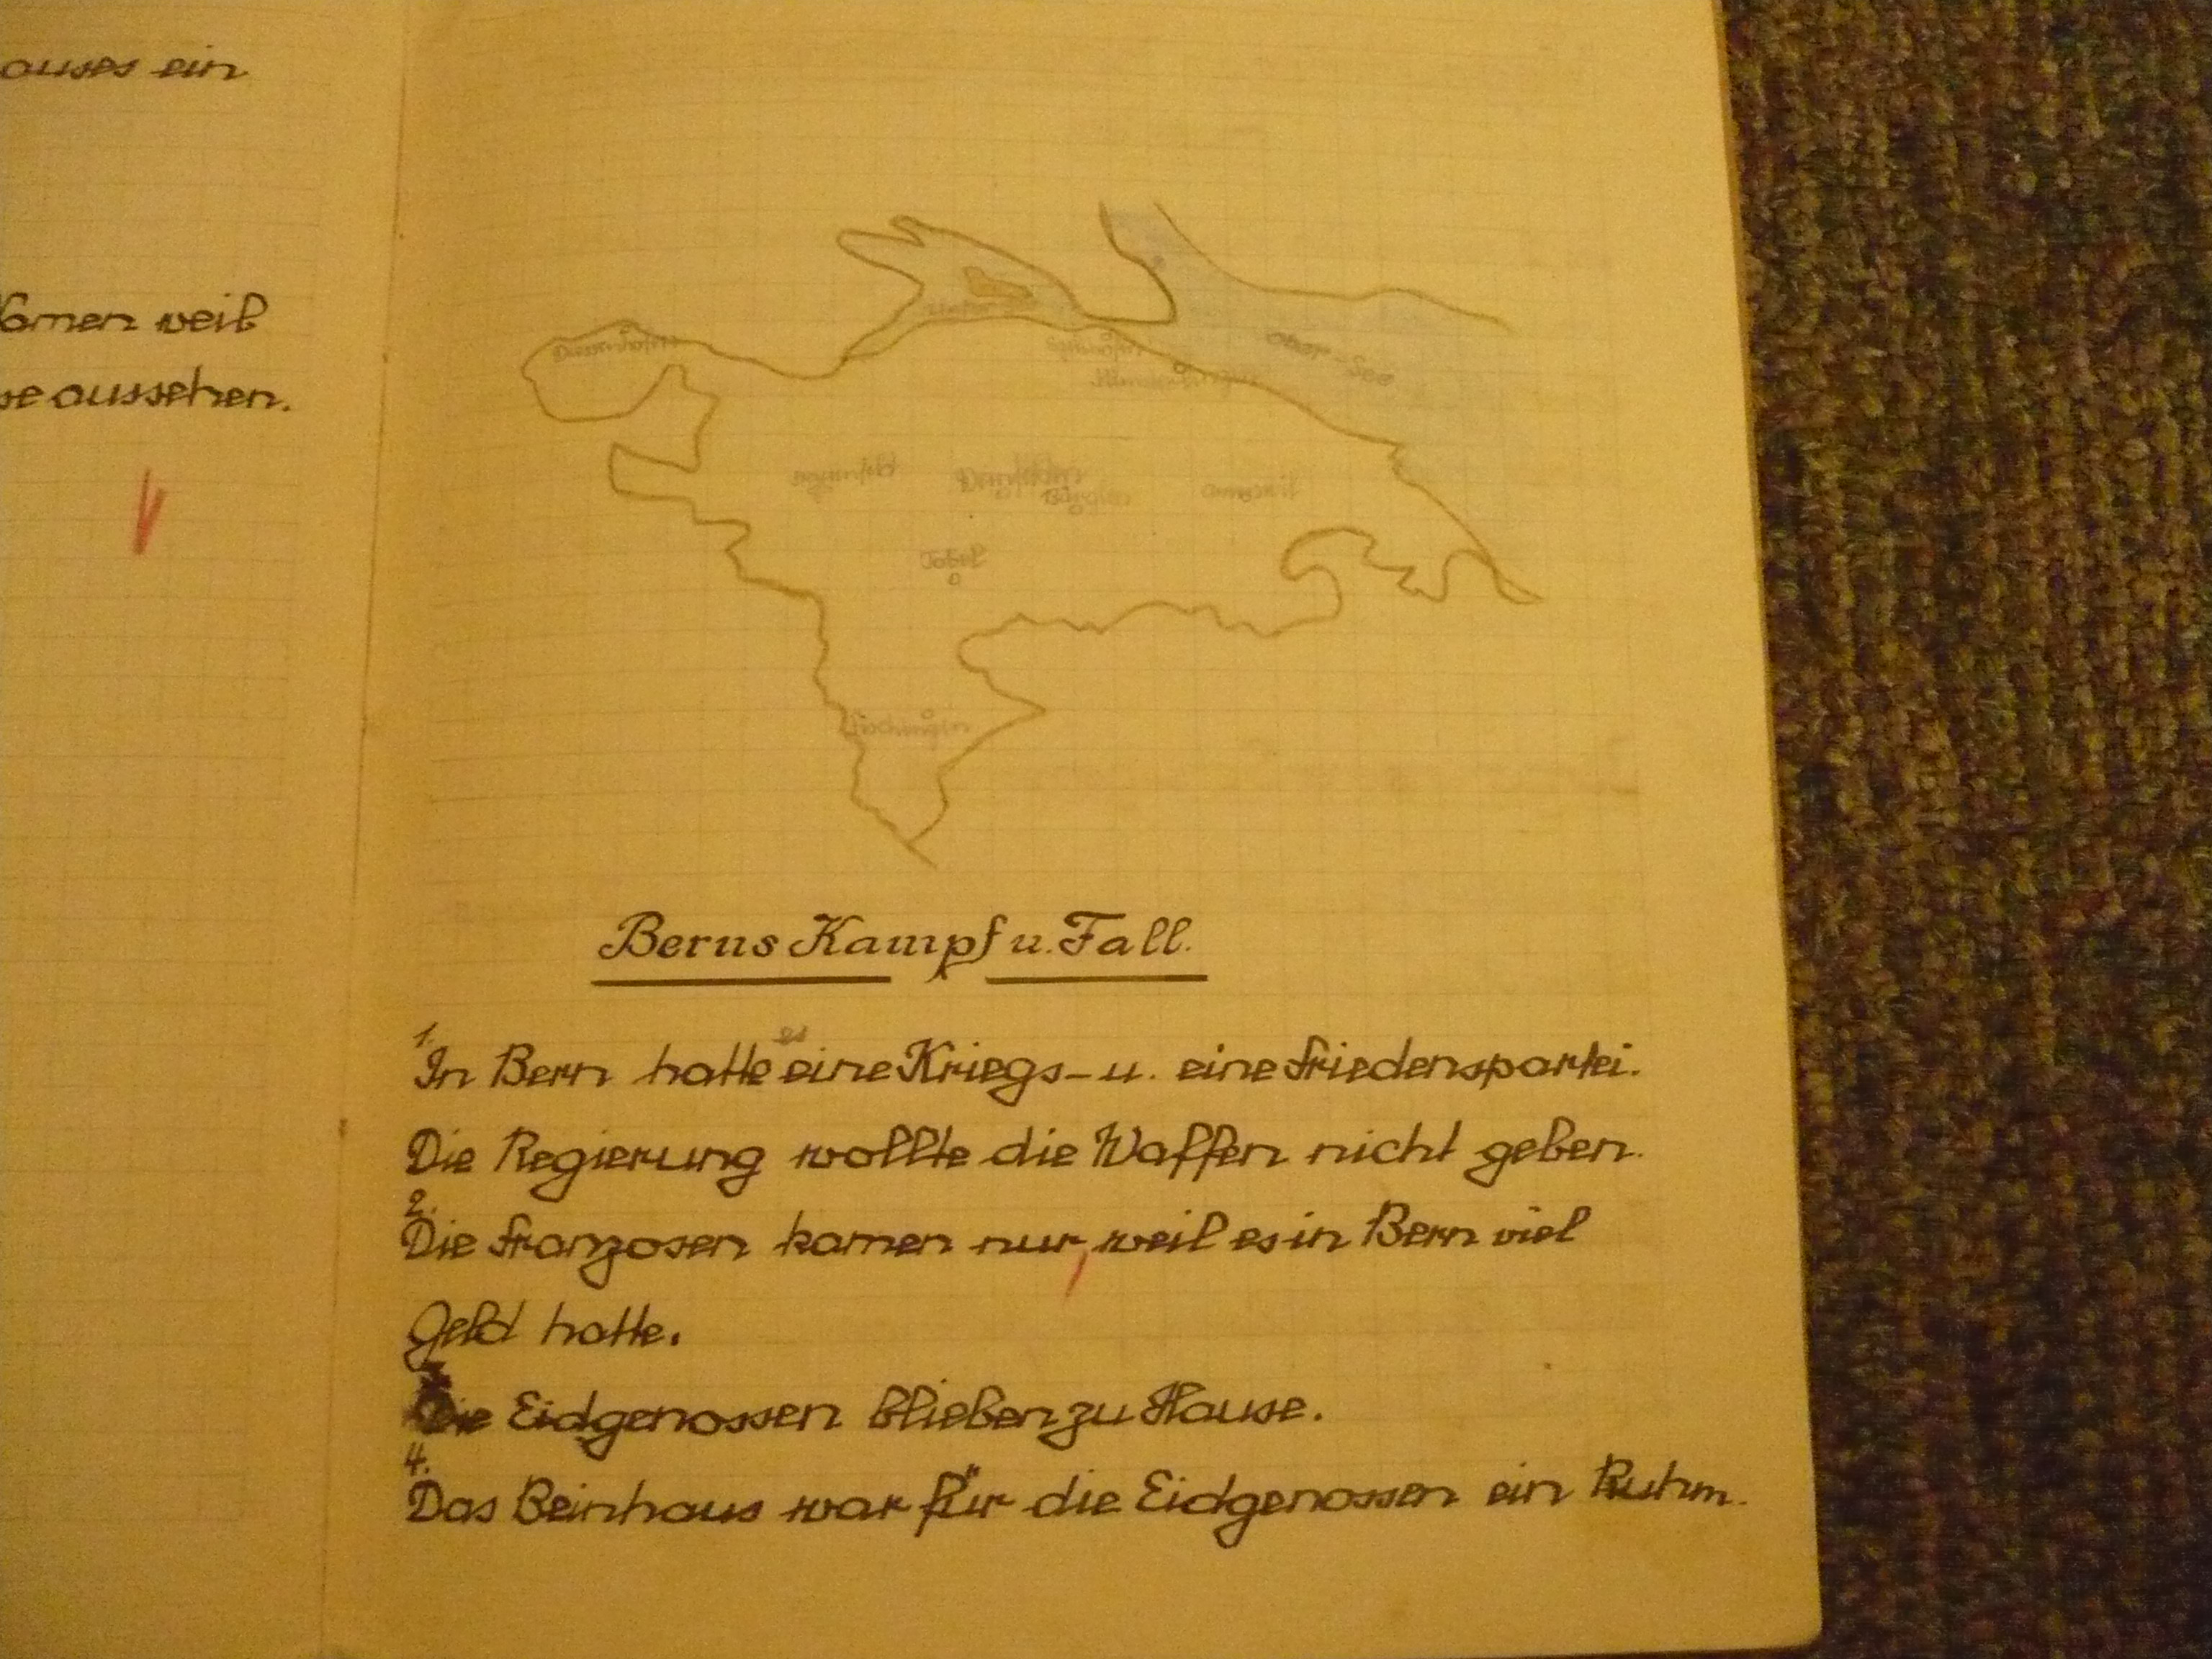 auses ein
Namen weil
se aussehen.
Ober-See
Bürglen
Amriswil
Tobel
Fischingen
Berns Kampf u. Fall.
1.
es
In Bern hatte eine Kriegs- u. eine Friedenspartei.
Die Regierung wollte die Waffen nicht geben.
2.
Die Franzosen kamen nur, weil es in Bern viel
Geld hatte.
Die Eidgenossen blieben zu Hause.
4.
Das Beinhaus war für die Eidgenossen ein Ruhm.